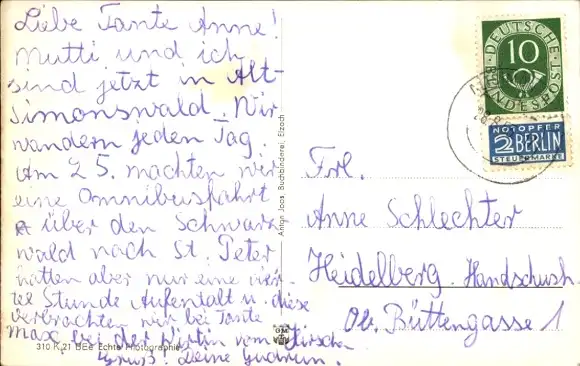 Liebe Tante Anne!
Mutti und ich
sind jetzt in Alt-
Simonswald. Wir
wandern jeden Tag.
Am 25. machten wir
eine Omnibusfahrt
über den Schwarz
wald nach St. Peter
hatten aber nur eine vier
tel Stunde Aufentalt u. diese
verbrachten wir bei Tante
Max, bei der Wirtin vom Hirschen
Gruß! Deine Gudrun.
310 K 21 BEe Echte Photographie
Anton Joos, Buchbinderei, Elzach
DEUTSCHE BUNDESPOST
10
NOTOPFER
2 BERLIN
STEUERMARKE
Frl.
Anne Schlechter
Heidelberg. Handschuh
Ob. Büttengasse 1